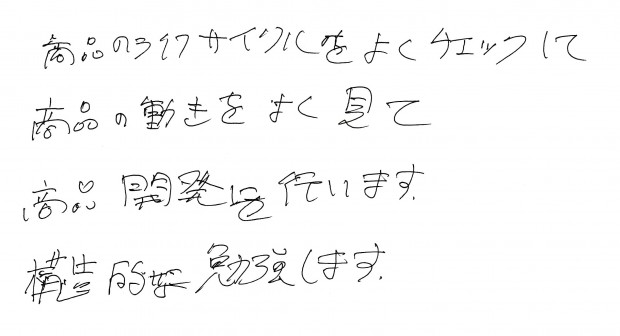 商品のライフサイクルをよくチェックして
商品の動きをよく見て
商品開発を行います.
構造的な勉強します.